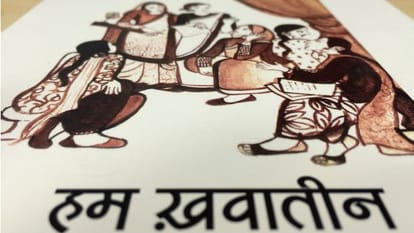 हम ख़वातीन